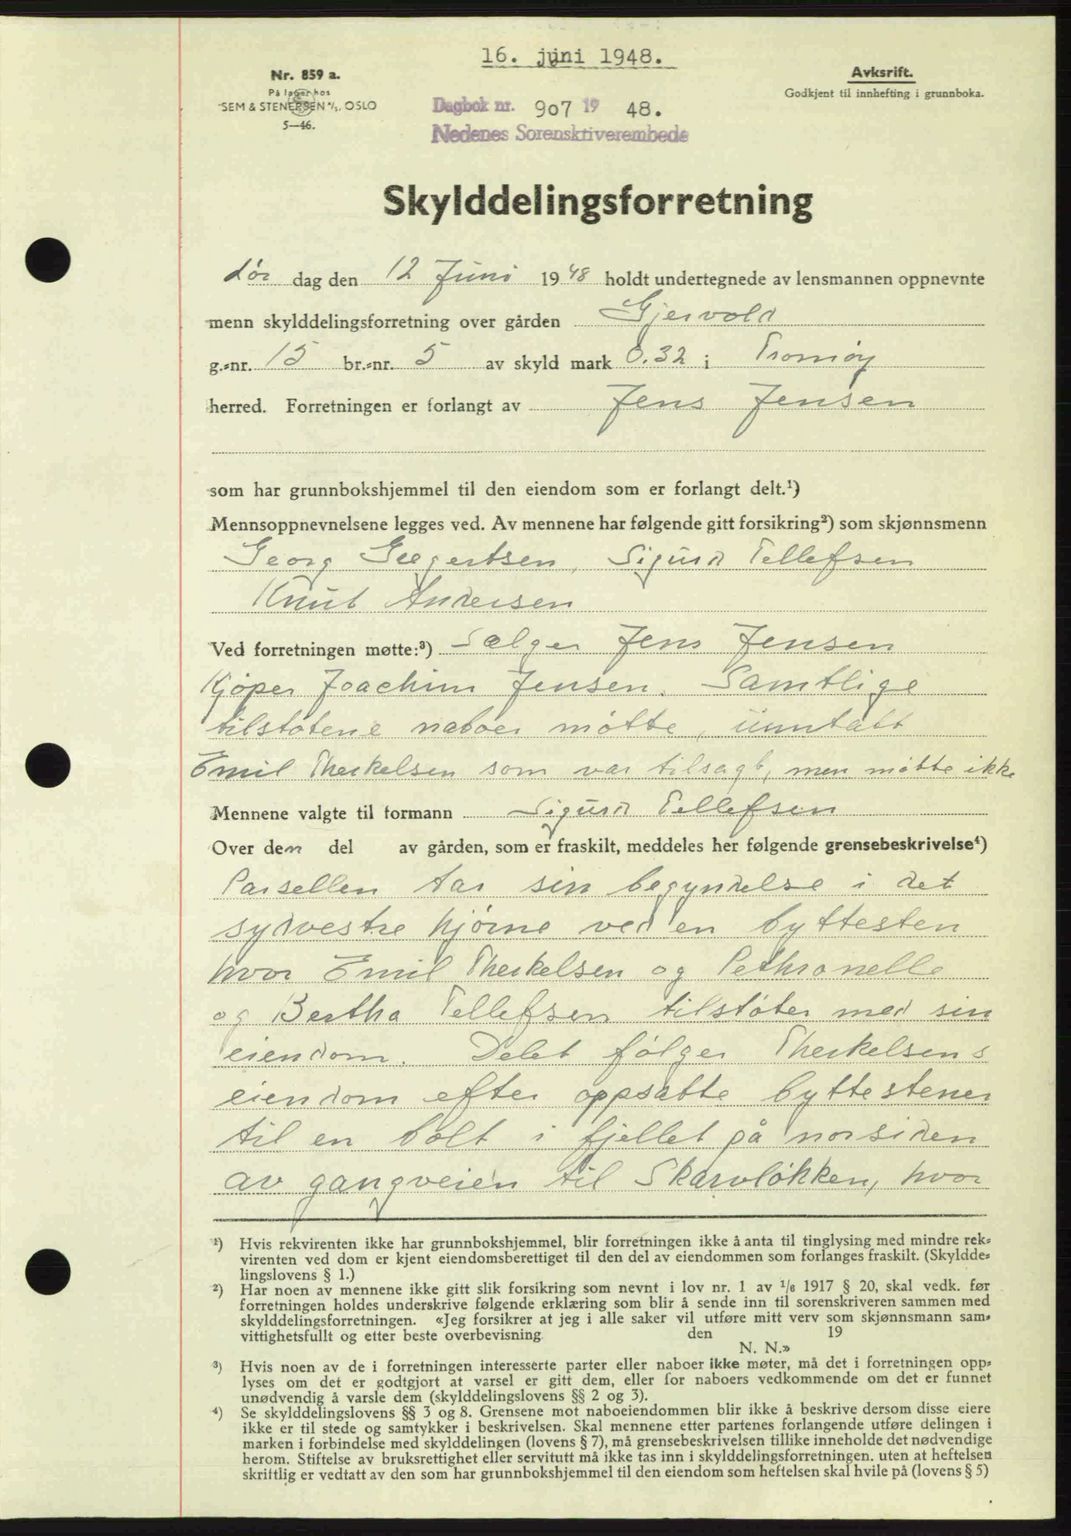 16. juni 1948.
Nr. 859 a.
På lager hos
SEM & STENERSEN A/S, OSLO
5—46.
Avksrift.
Godkjent til innhefting i grunnboka.
Dagbok nr. 907 19 48.
Nedenes Sorensktiverembede
Skylddelingsforretning
Lør dag den 12 Juni 1948 holdt undertegnede av lensmannen oppnevnte
menn skylddelingsforretning over gården Gjervold
g.-nr. 15 br.-nr. 5 av skyld mark 0.32 i Tromøy
herred. Forretningen er forlangt av Jens Jensen
som har grunnbokshjemmel til den eiendom som er forlangt delt.¹)
Mennsoppnevnelsene legges ved. Av mennene har følgende gitt forsikring²) som skjønnsmenn
Georg Seegertsen, Sigurd Tellefsen
Knut Andersen
Ved forretningen møtte:³) Sælger Jens Jensen
Kjøper Joachim Jensen. Samtlige
tilstøtene naboer møtte, unntatt
Emil Therkelsen som var tilsagt, men møtte ikke
Mennene valgte til formann Sigurd Tellefsen
Over den del av gården, som er fraskilt, meddeles her følgende grensebeskrivelse⁴)
Parsellen tar sin begyndelse i det
sydvestre hjørne ved en byttesten
hvor Emil Therkelsen og Pethronelle
og Bertha Tellefsen tilstøter med sin
eiendom. Delet følger Therkelsens
eiendom efter oppsatte byttestener
til en bolt i fjellet på norsiden
av gangveien til Skarvløkken, hvor
¹) Hvis rekvirenten ikke har grunnbokshjemmel, blir forretningen ikke å anta til tinglysing med mindre rek-
virenten ved dom er kjent eiendomsberettiget til den del av eiendommen som forlanges fraskilt. (Skyldde-
lingslovens § 1.)
²) Har noen av mennene ikke gitt slik forsikring som nevnt i lov nr. 1 av 1/6 1917 § 20, skal vedk. før
forretningen holdes underskrive følgende erklæring som blir å sende inn til sorenskriveren sammen med
skylddelingsforretningen. «Jeg forsikrer at jeg i alle saker vil utføre mitt verv som skjønnsmann sam-
vittighetsfullt og etter beste overbevisning den 19
N. N.»
³) Hvis noen av de i forretningen interesserte parter eller naboer ikke møter, må det i forretningen opp-
lyses om det er godtgjort at varsel er gitt dem, eller for naboers vedkommende om det er funnet
unødvendig å varsle dem (skylddelingslovens §§ 2 og 3).
⁴) Se skylddelingslovens §§ 3 og 8. Grensene mot naboeiendommen blir ikke å beskrive dersom disse eiere
ikke er til stede og samtykker i beskrivelsen. Skal mennene etter partenes forlangende utføre delingen i
marken i forbindelse med skylddelingen (lovens § 7), må grensebeskrivelsen tillike inneholde det nødvendige
herom. Stiftelse av bruksrettighet eller servitutt må ikke tas inn i skylddelingsforretningen. uten at heftelsen
skriftlig er vedtatt av den som har grunnbokshjemmel til den eiendom som heftelsen skal hvile på (lovens § 5)